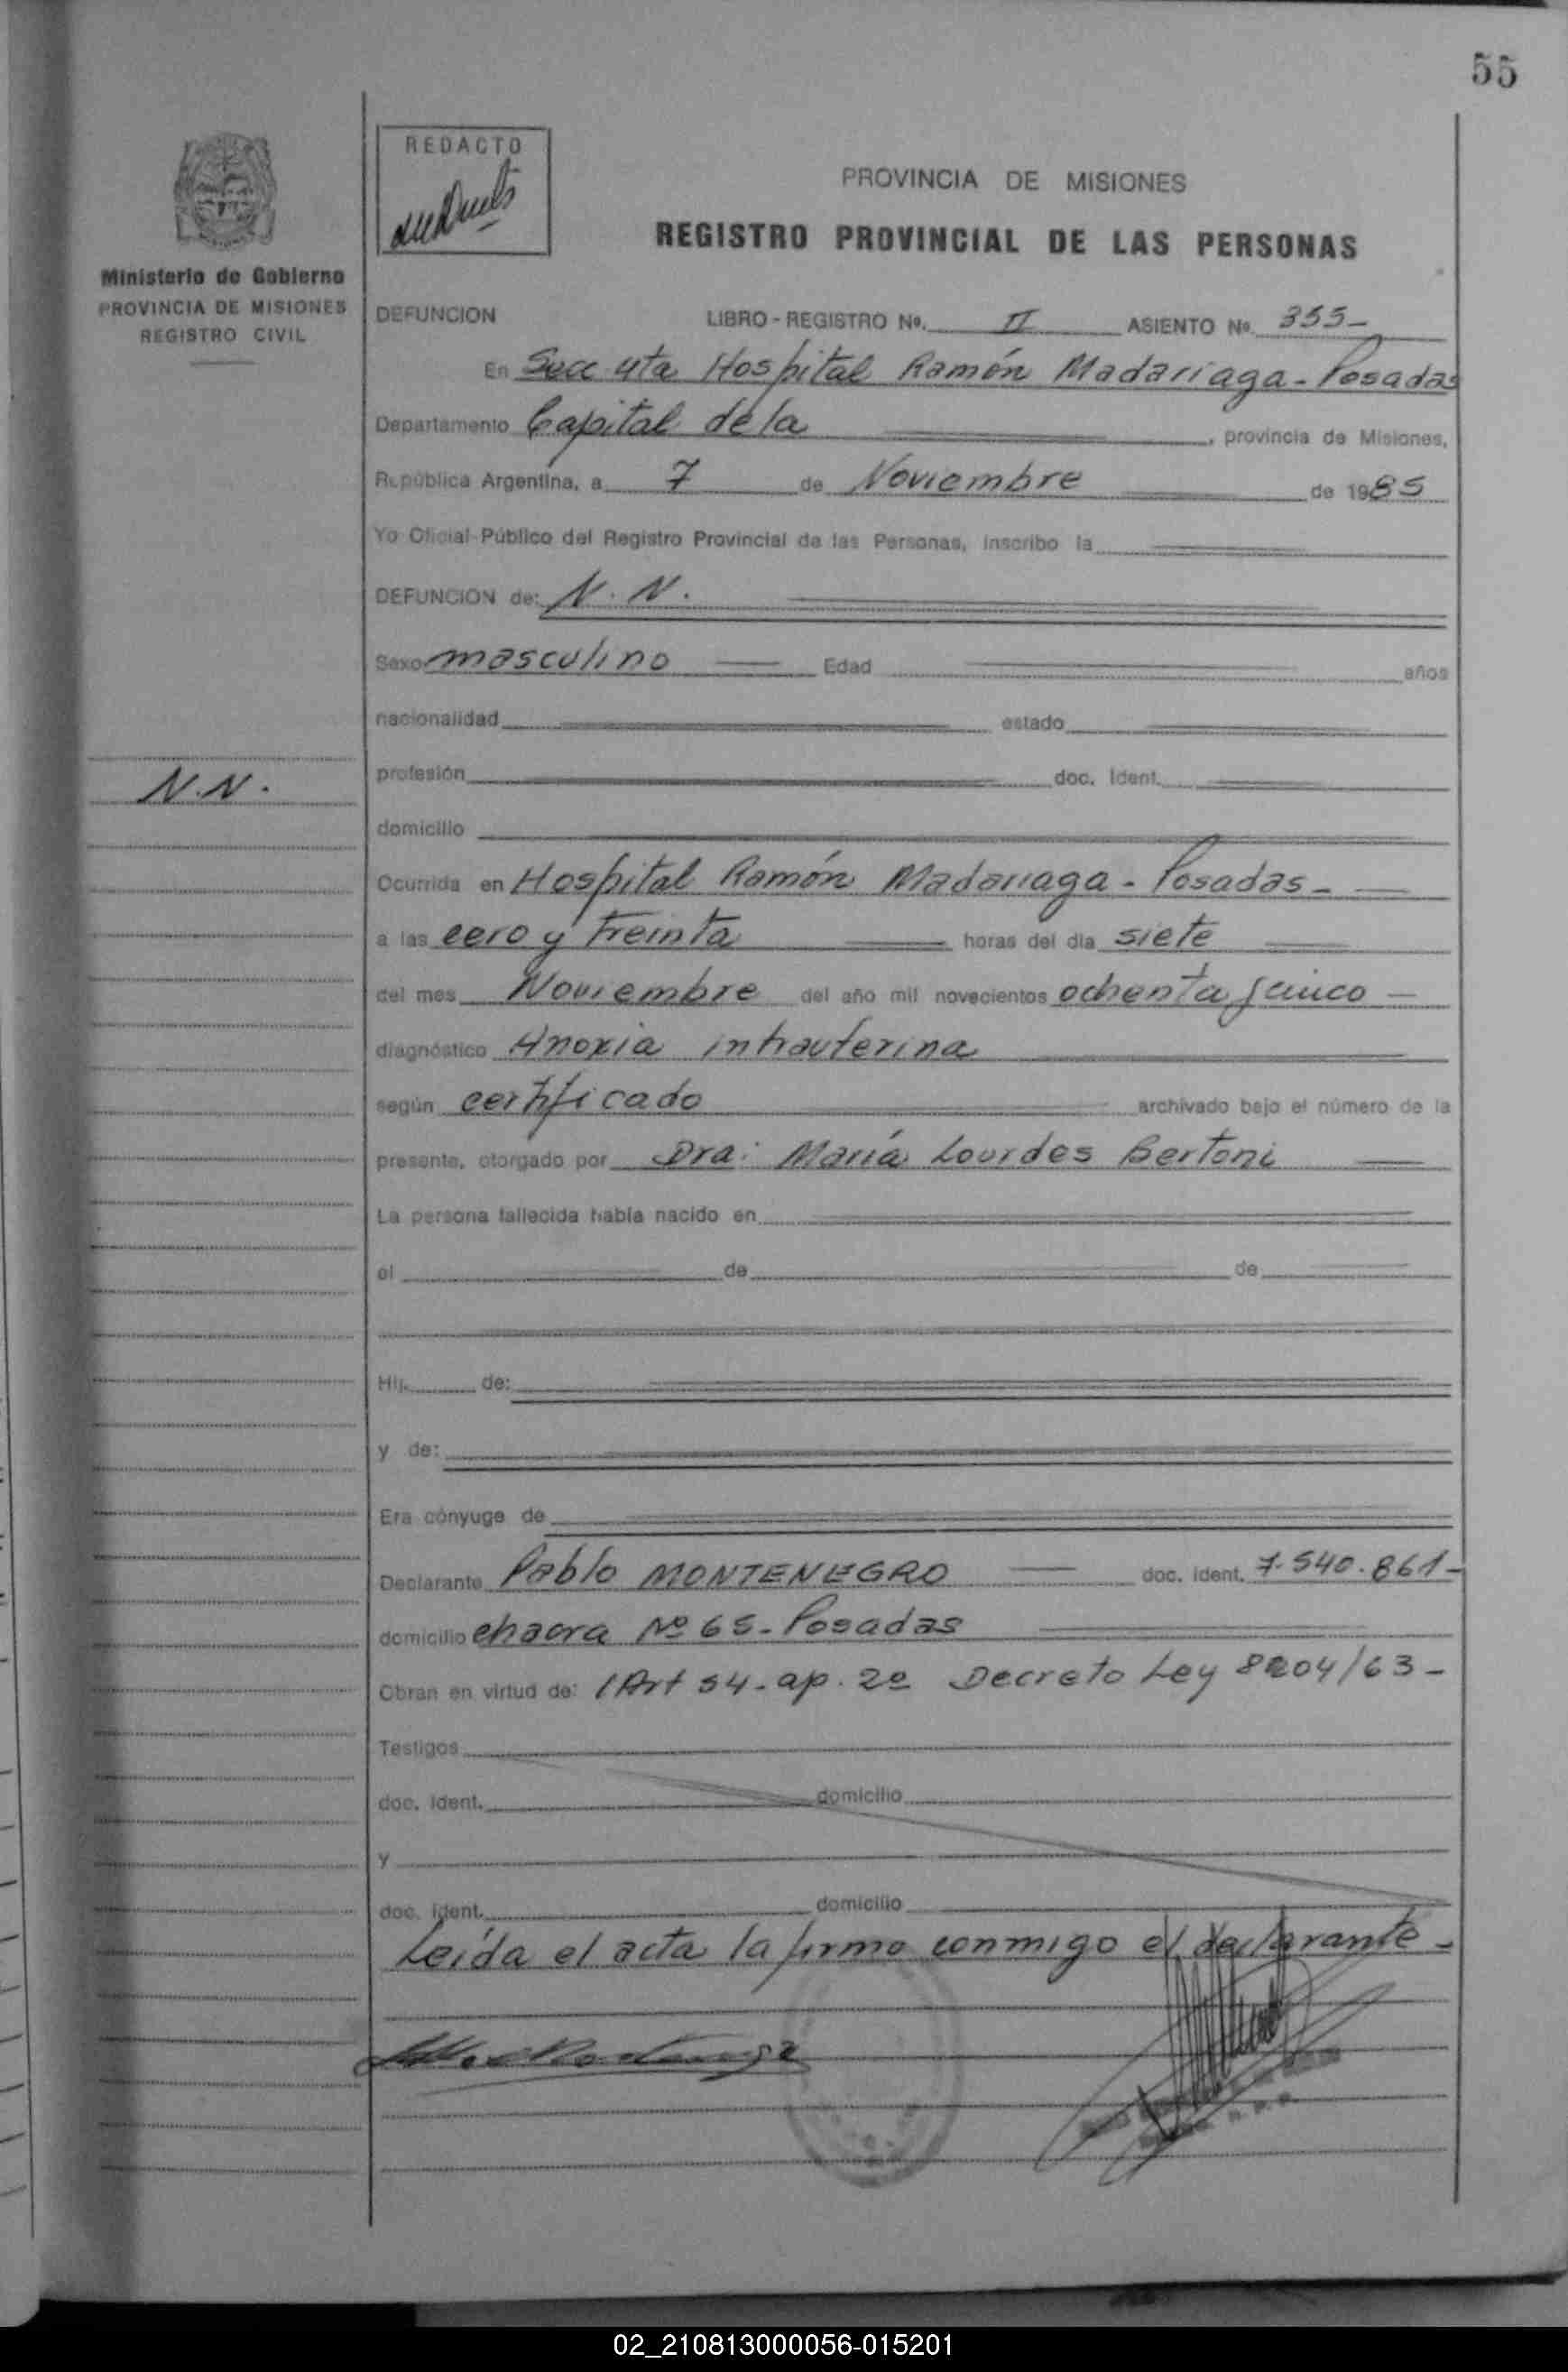 55
REDACTO
PROVINCIA DE MISIONES
REGISTRO PROVINCIAL DE LAS PERSONAS
Ministerio de Gobierno
PROVINCIA DE MISIONES
REGISTRO CIVIL
DEFUNCION LIBRO - REGISTRO No. II ASIENTO No. 355-
En Secc 4ta Hospital Ramón Madariaga - Posadas
Departamento Capital de la , provincia de Misiones,
República Argentina, a 7 de Noviembre de 1985
Yo Oficial Público del Registro Provincial de las Personas, inscribo la
DEFUNCION de: N. N.
Sexo masculino Edad años
nacionalidad estado
N.N.
profesión doc. Ident.
domicilio
Ocurrida en Hospital Ramón Madariaga - Posadas -
a las cero y treinta horas del día siete
del mes Noviembre del año mil novecientos ochenta y cinco
diagnóstico Anoxia intrauterina
según certificado archivado bajo el número de la
presente, otorgado por Dra: María Lourdes Bertoni
La persona fallecida había nacido en
el de de
Hij. de:
y de:
Era cónyuge de
Declarante Pablo MONTENEGRO doc. ident. 7.540.861-
domicilio chacra Nº 65 - Posadas
Obran en virtud de: Art 54 - ap. 2º Decreto Ley 8204/63 -
Testigos
doc. ident. domicilio
y
doc. ident. domicilio
Leída el acta la firma conmigo el declarante -
02_210813000056-015201